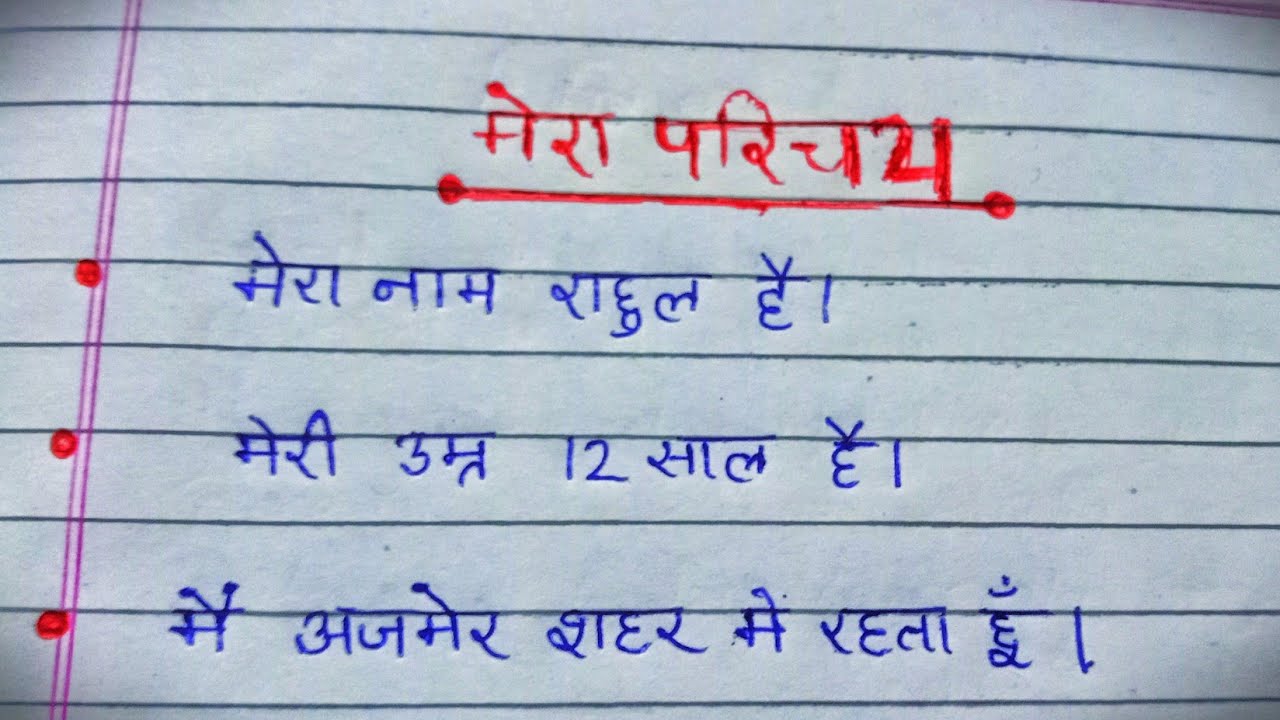 मेरा परिचय
मेरा नाम राहुल है।
मेरी उम्र 12 साल है।
मैं अजमेर शहर में रहता हूँ।